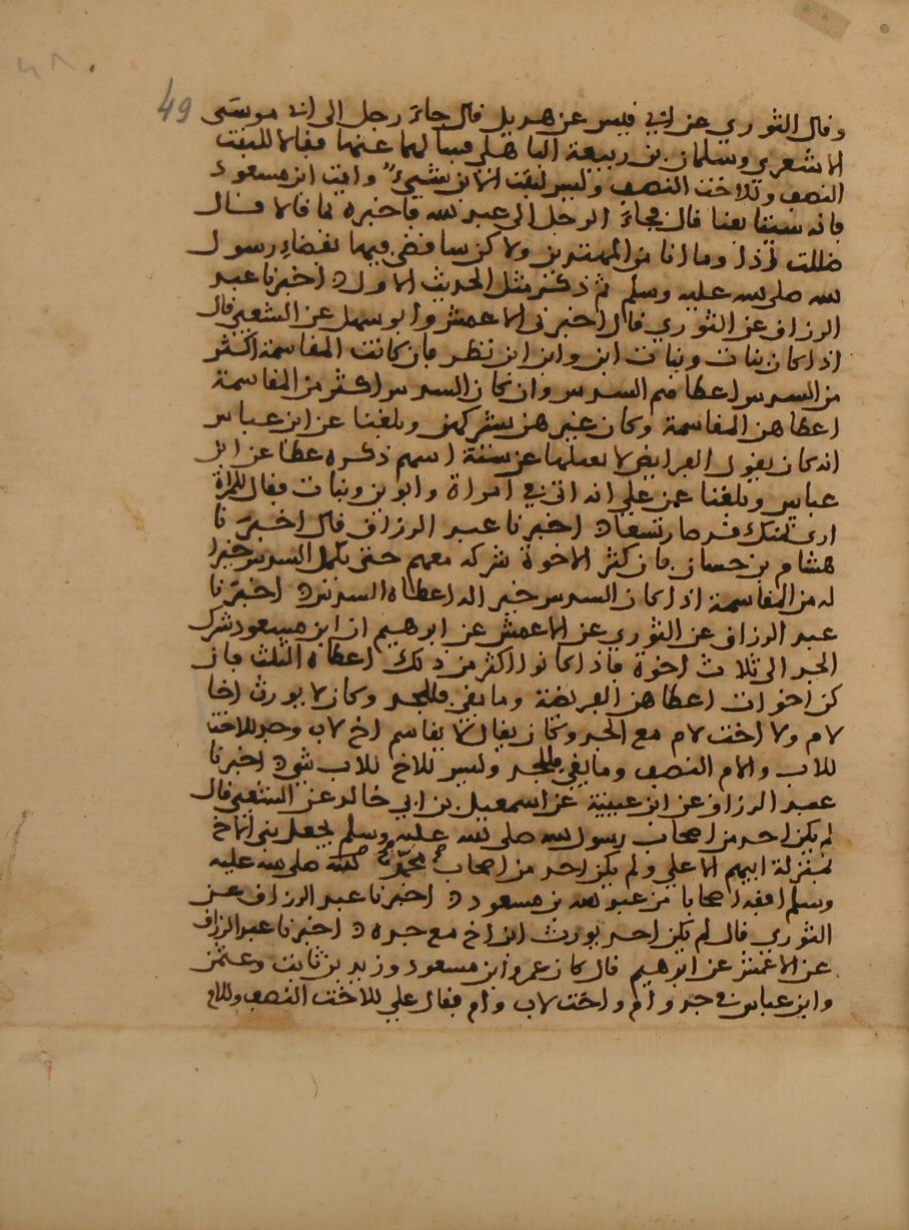 49
وقال الثوري عن ابي قيس عن هزيل قال جاء رجل الى ابي موسى
الاشعري وسلمان بن ربيعة الباهلي فسالهما عنها فقالا للبنت
النصف وللاخت النصف وليس لبنت الابن شيء وايت ابن مسعود
فانه سيتابعنا قال فجاء الرجل الى عبد الله فاخبره بما قالا فقال
ضللت اذا وما انا من المهتدين ولاكن ساقضي فيها بقضاء رسول
الله صلى الله عليه وسلم ثم ذكر مثل الحديث الاول ه اخبرنا عبد
الرزاق عن الثوري قال اخبرني الاعمش وابو سهل عن الشعبي قال
اذا كان بنات وبنات ابن وابن ابن نظر فان كانت المقاسمة اكثر
من السدس اعطاهم السدس وان كان السدس اكثر من المقاسمة
اعطاهن المقاسمة وكان غيرهن يشركهن وبلغنا عن ابن عباس
انه كان يقول الفرايض لا نعيلها عن ستة اسهم ذكره عطا عن ابن
عباس وبلغنا عن علي انه اتي في امراة وابوين وبنات فقال للمراة
ارى ثمنك قد صار تسعا ه اخبرنا عبد الرزاق قال اخبرنا
هشام بن حسان فان كثر الاخوة شركه معهم حتى يكمل السدس خيرا
له من المقاسمة اذا كان السدس خير اله اعطاه السدس ه اخبرنا
عبد الرزاق عن الثوري عن الاعمش عن ابرهيم ان ابن مسعود شرك
الجد الى ثلاث اخوة فاذا كانوا اكثر من ذلك اعطاه الثلث فان
كن اخوات اعطاهن الفريضة وما بقي فللجد وكان لا يورث اخا
لام ولا اخت لام مع الجد وكان يقال لا يقاسم اخ لاب وجد للاخت
للاب والام النصف وما بقي فللجد وليس للاخ للاب شي ه اخبرنا
عبد الرزاق عن ابن عيينة عن اسمعيل بن ابي خالد عن الشعبي قال
لم يكن احد من اصحاب رسول الله صلى الله عليه وسلم يجعل بني الاخ
بمنزلة ابيهم الا علي ولم يكن احد من اصحاب محمد صلى الله عليه
وسلم افقه اصحابا من عبد الله بن مسعود ه اخبرنا عبد الرزاق عن
الثوري قال لم يكن احد يورث ابن اخ مع جد ه اخبرنا عبد الرزاق
عن الاعمش عن ابرهيم قال كان عمر وابن مسعود وزيد بن ثابت وعثمن
وابن عباس في جد وام واخت لاب وام فقال علي للاخت النصف وللام